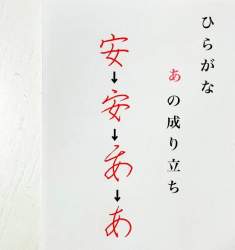 ひらがな
あの成り立ち
安
↓
安
↓
あ
↓
あ